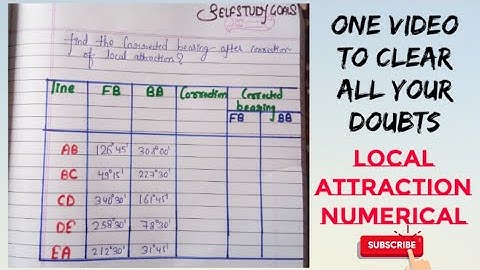 SELFSTUDY GOALS
find the Corrected bearing after correction
of local attraction?
line FB BB Correction Corrected bearing
FB BB
AB 126°45' 308°00'
BC 49°15' 227°30'
CD 340°30' 161°45'
DE 258°30' 78°30'
EA 212°30' 31°45'
ONE VIDEO
TO CLEAR
ALL YOUR
DOUBTS
LOCAL
ATTRACTION
NUMERICAL
SUBSCRIBE